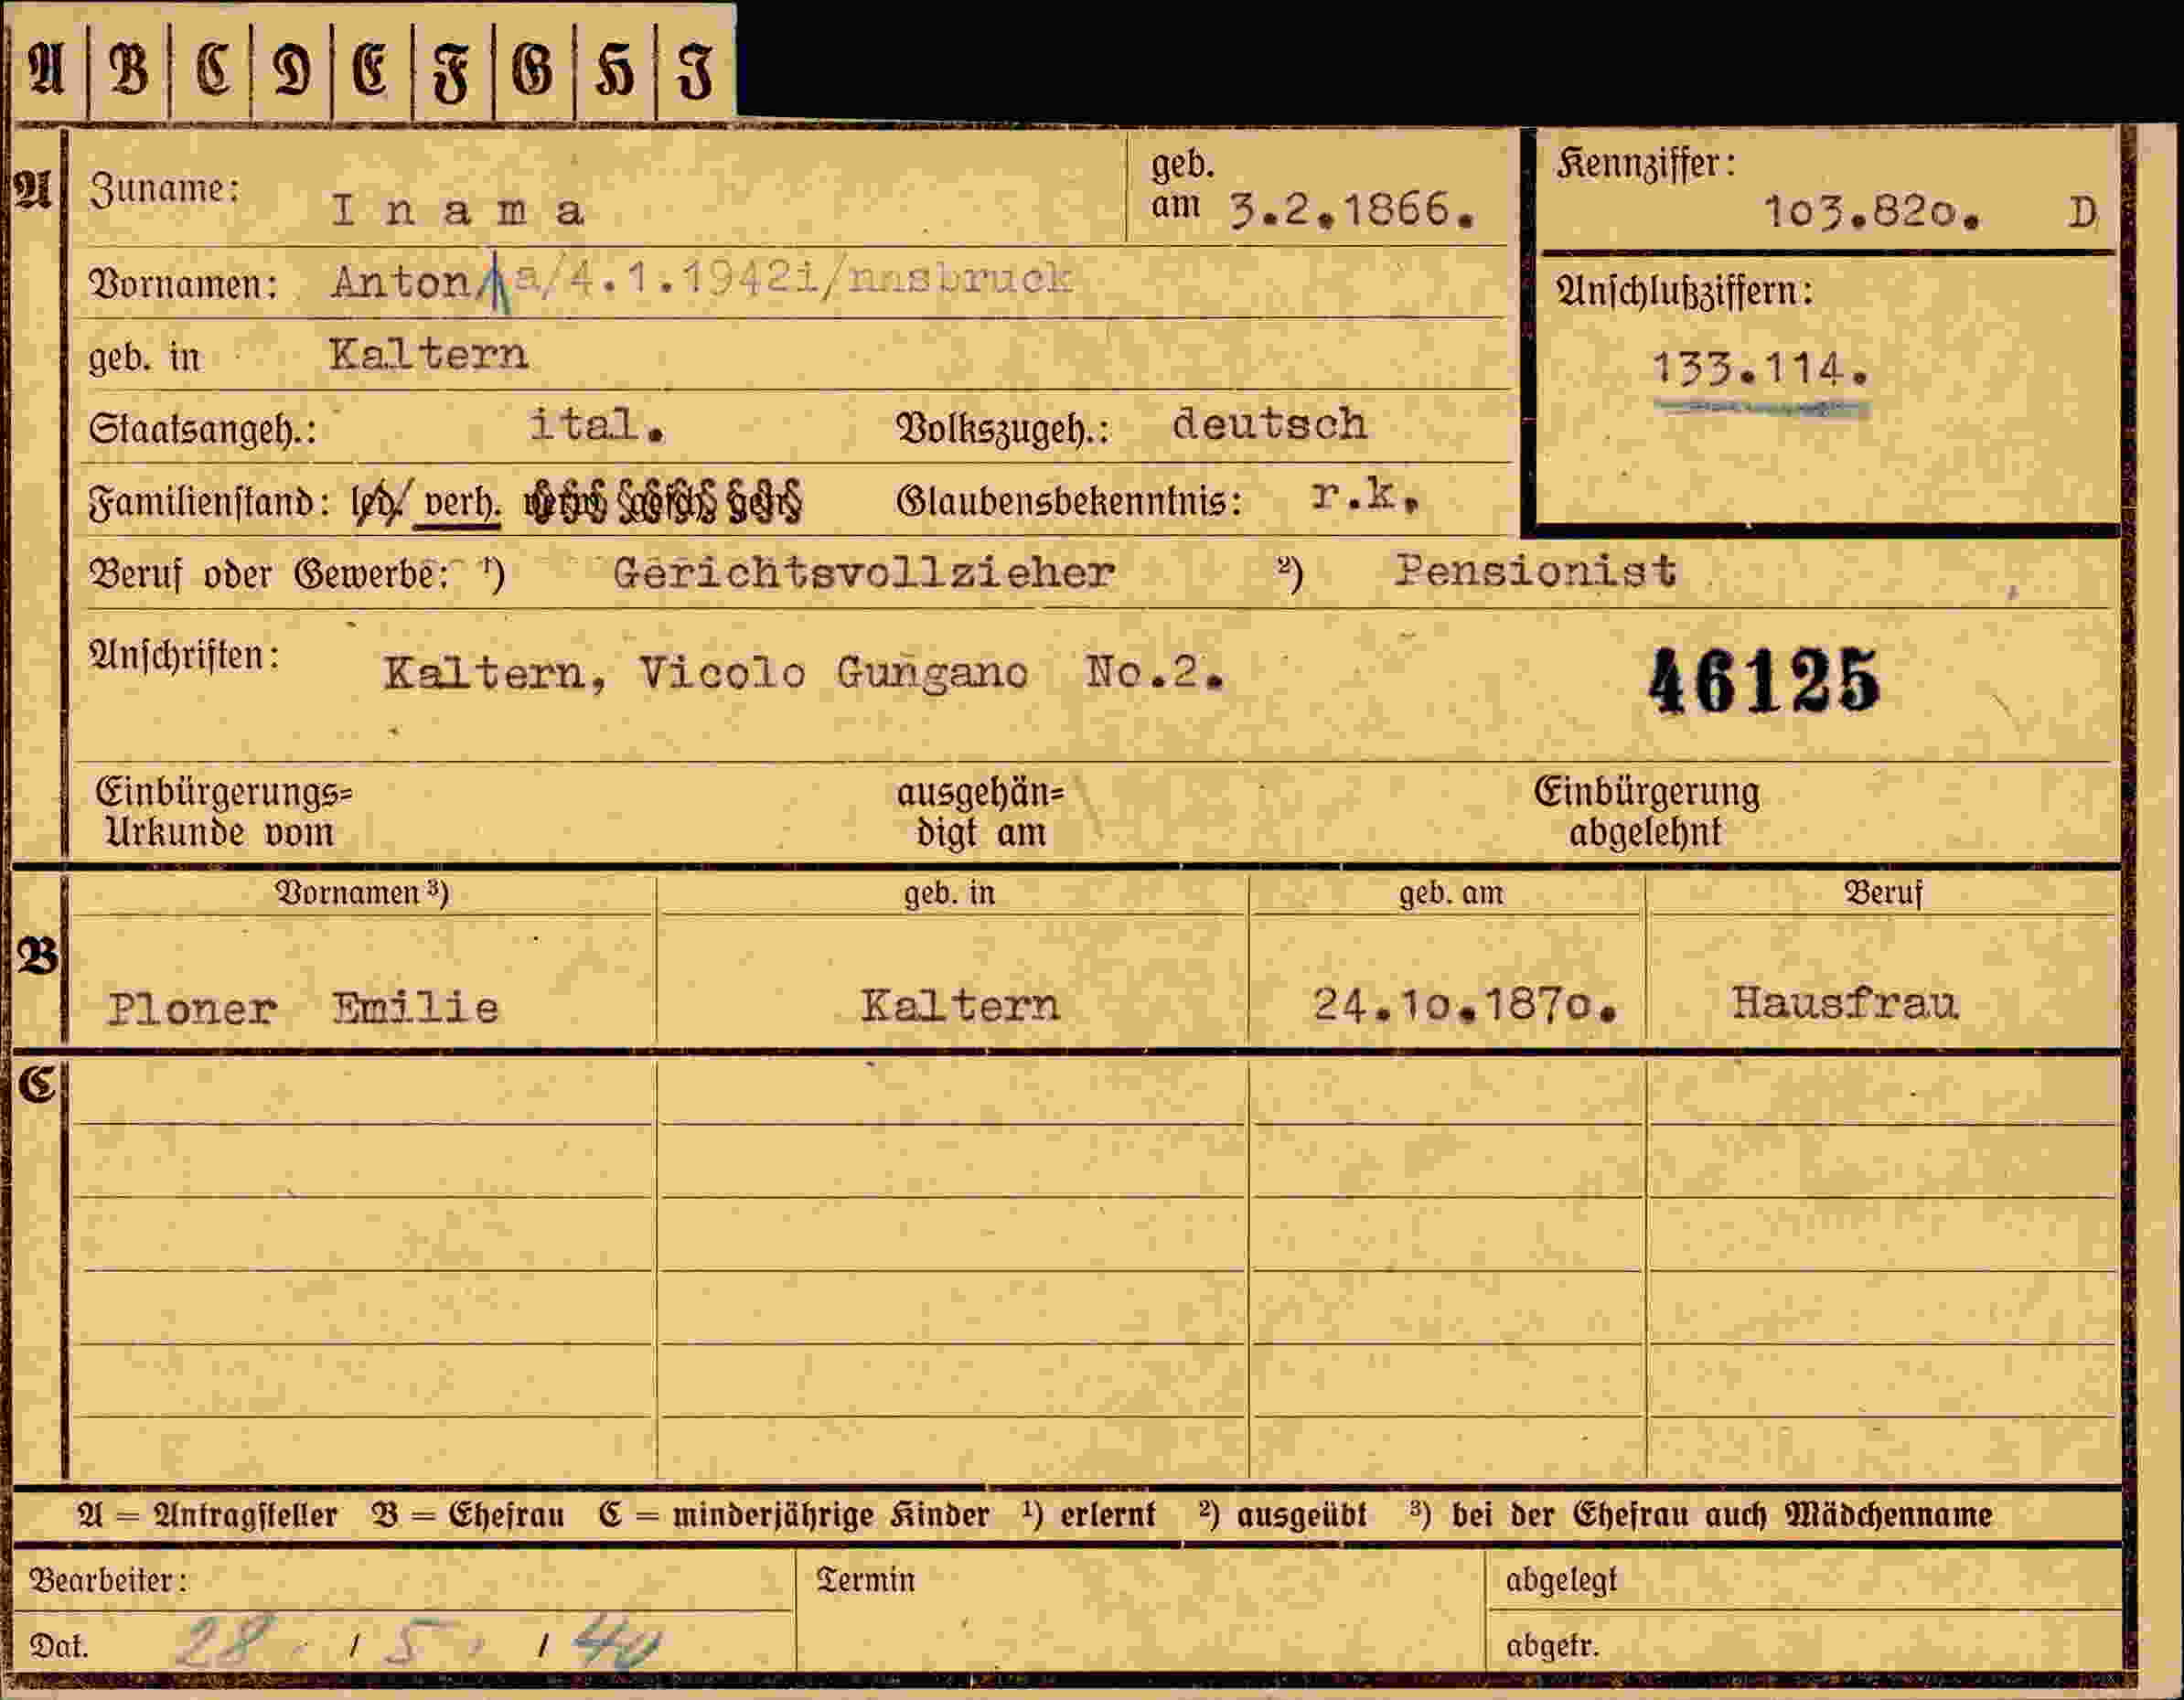 A B C D E F G H I
A Zuname: Inama geb. am 3.2.1866. Kennziffer: 103.820. D
Vornamen: Anton a/4.1.1942i/nnsbruck Anschlußziffern:
133.114.
geb. in Kaltern
Staatsangeh.: ital. Volkszugeh.: deutsch
Familienstand: led. verh. Glaubensbekenntnis: r.k.
Beruf oder Gewerbe: ¹) Gerichtsvollzieher ²) Pensionist
Anschriften: Kaltern, Vicolo Gungano No.2. 46125
Einbürgerungs= ausgehän= Einbürgerung
Urkunde vom digt am abgelehnt
Vornamen ³) geb. in geb. am Beruf
B Ploner Emilie Kaltern 24.10.1870. Hausfrau
C
A = Antragsteller B = Ehefrau C = minderjährige Kinder ¹) erlernt ²) ausgeübt ³) bei der Ehefrau auch Mädchenname
Bearbeiter: Termin abgelegt
Dat. 28. / 5. / 40 abgetr.